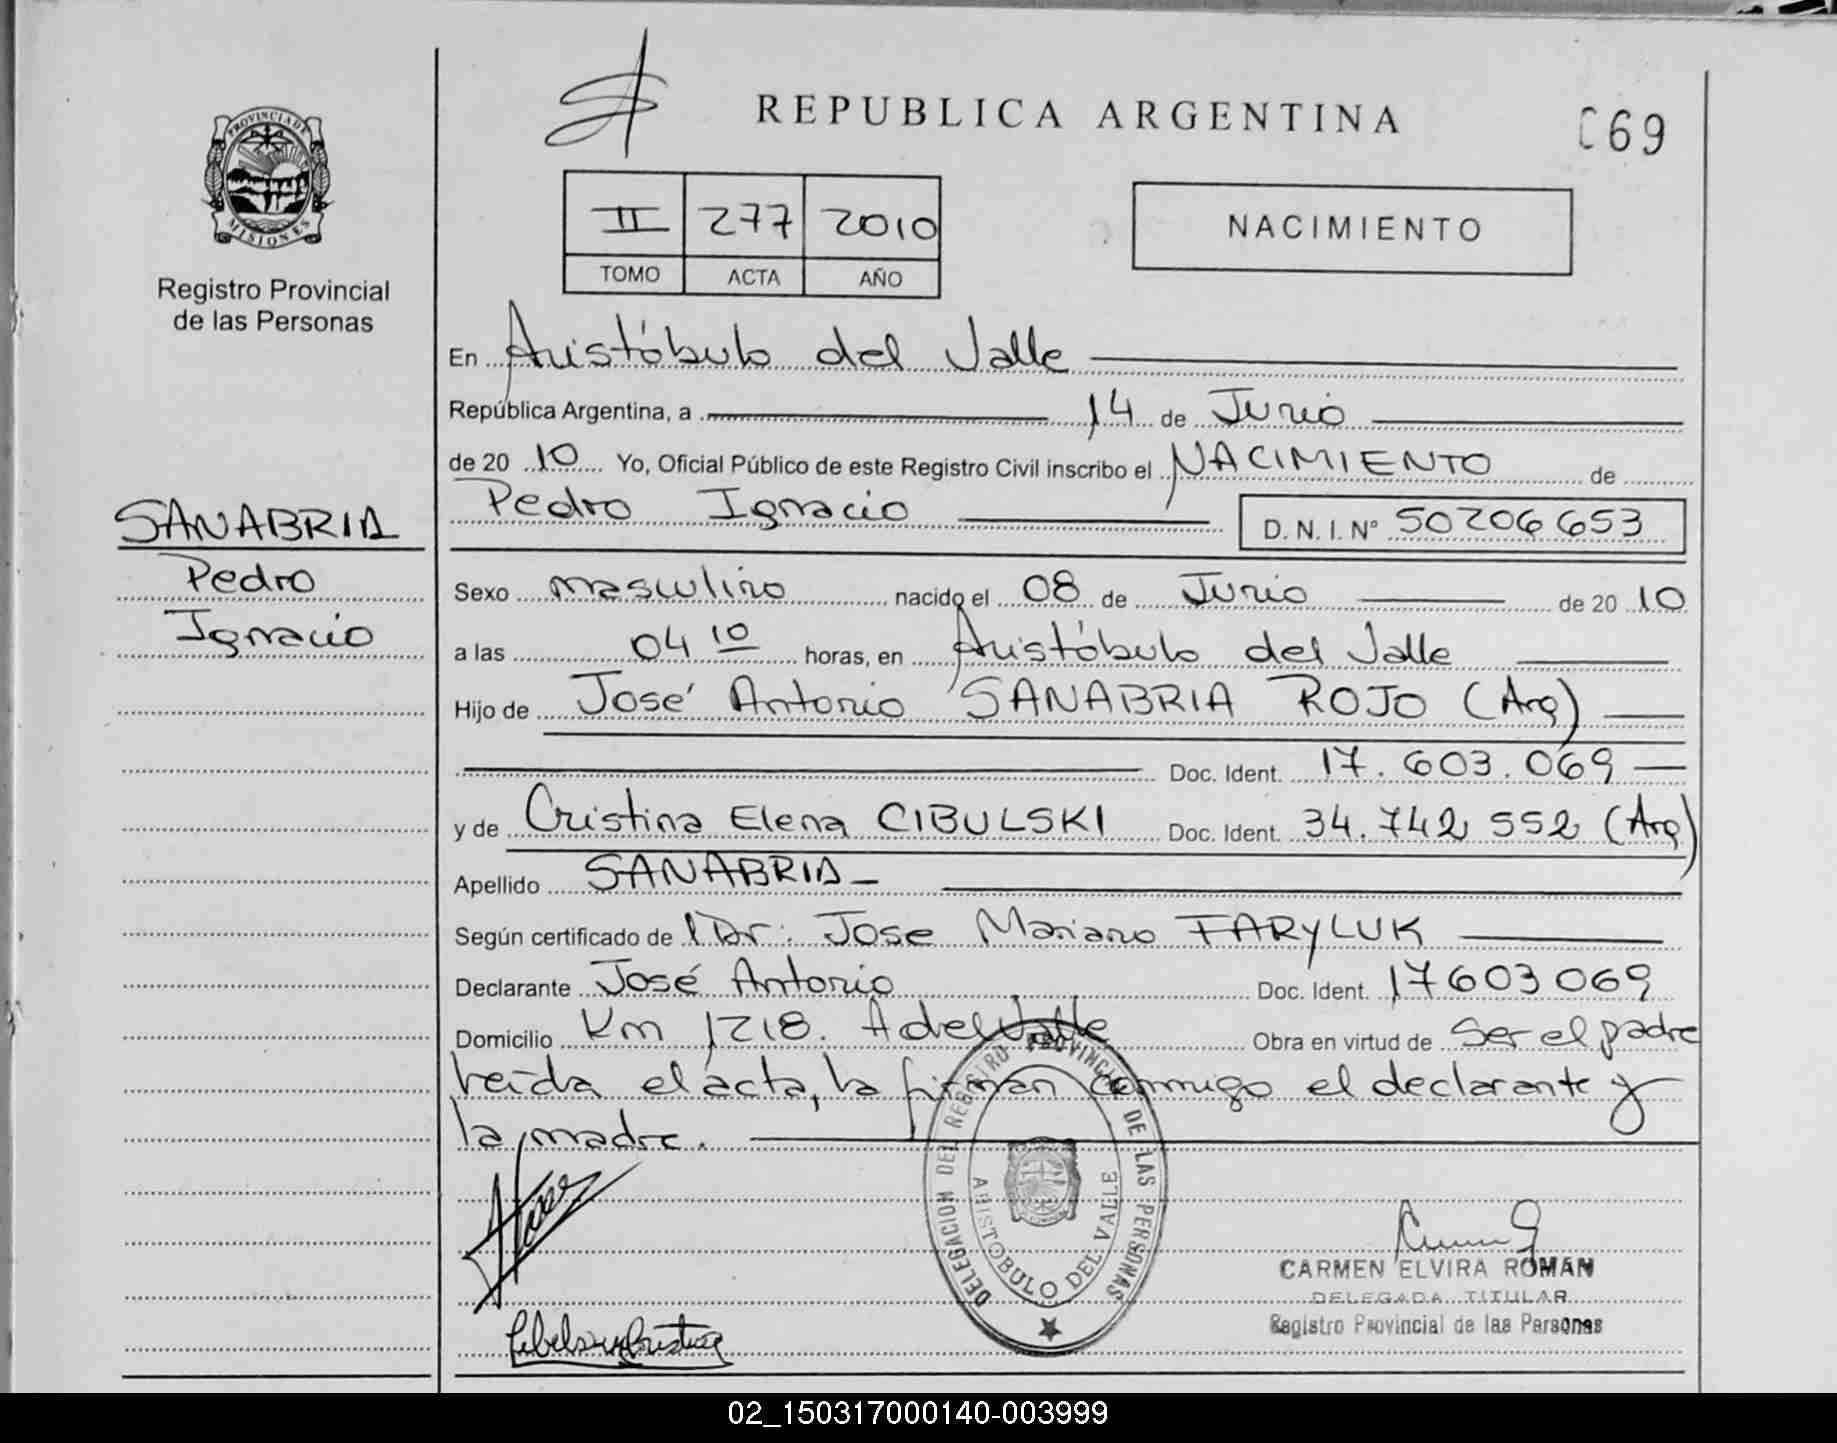 REPUBLICA ARGENTINA
69
PROVINCIA DE
MISIONES
Registro Provincial
de las Personas
II 277 2010
TOMO ACTA AÑO
NACIMIENTO
En Aristóbulo del Valle
República Argentina, a 14 de Junio
de 20 10 Yo, Oficial Público de este Registro Civil inscribo el NACIMIENTO de
Pedro Ignacio D. N. I. N° 50206653
SANABRIA
Pedro
Ignacio
Sexo masculino nacido el 08 de Junio de 20 10
a las 04 10 horas, en Aristóbulo del Valle
Hijo de José Antonio SANABRIA ROJO (Arg)
Doc. Ident. 17.603.069
y de Cristina Elena CIBULSKI Doc. Ident. 34.742 552 (Arg)
Apellido SANABRIA
Según certificado de Dr. Jose Mariano FARYLUK
Declarante José Antonio Doc. Ident. 17603069
Domicilio Km 1218. A del Valle Obra en virtud de Ser el padre
Leída el acta, la firman conmigo el declarante y
la madre.
DELEGACION DEL REGISTRO PROVINCIAL DE LAS PERSONAS
ARISTOBULO DEL VALLE
CARMEN ELVIRA ROMAN
DELEGADA TITULAR
Registro Provincial de las Personas
02_150317000140-003999